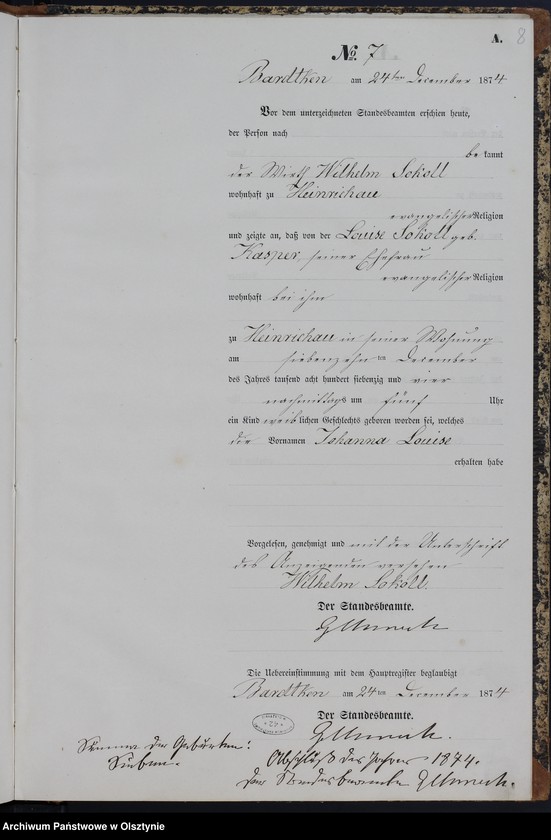 A. 8
No. 7
Bardtken am 24ten December 1874
Vor dem unterzeichneten Standesbeamten erschien heute,
der Person nach
bekannt
der Wirth Wilhelm Sokoll
wohnhaft zu Heinrichau
evangelischer Religion
und zeigte an, daß von der Louise Sokoll geb.
Kasper, seiner Ehefrau
evangelischer Religion
wohnhaft bei ihm
zu Heinrichau in seiner Wohnung
am siebenzehnten December
des Jahres tausend acht hundert siebenzig und vier
nachmittags um fünf Uhr
ein Kind weiblichen Geschlechts geboren worden sei, welches
die Vornamen Johanna Louise
erhalten habe
Vorgelesen, genehmigt und mit der Unterschrift
des Anzeigenden versehen
Wilhelm Sokoll.
Der Standesbeamte.
Die Uebereinstimmung mit dem Hauptregister beglaubigt
Bardtken am 24ten December 1874
Der Standesbeamte.
Summa der Geburten:
Sieben.
Abschluß des Jahres 1874.
Der Standesbeamte
Archiwum Państwowe w Olsztynie